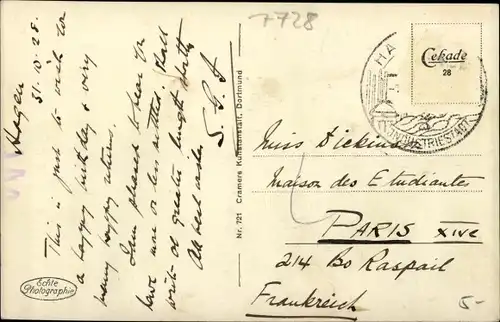 7728
Hagen
31.10.28.
This is just to wish you
a happy birthday & very
many happy returns.
I am pleased to hear you
have more or less settled. Shall
write at greater length shortly
All best wishes
Echte
Photographie
Nr. 721 Cramers Kunstanstalt, Dortmund
HA
INDUSTRIESTADT
Cekade
28
Miss Dickins
Maison des Etudiantes
PARIS XIVe
214 Bo Raspail
Frankreich
5-